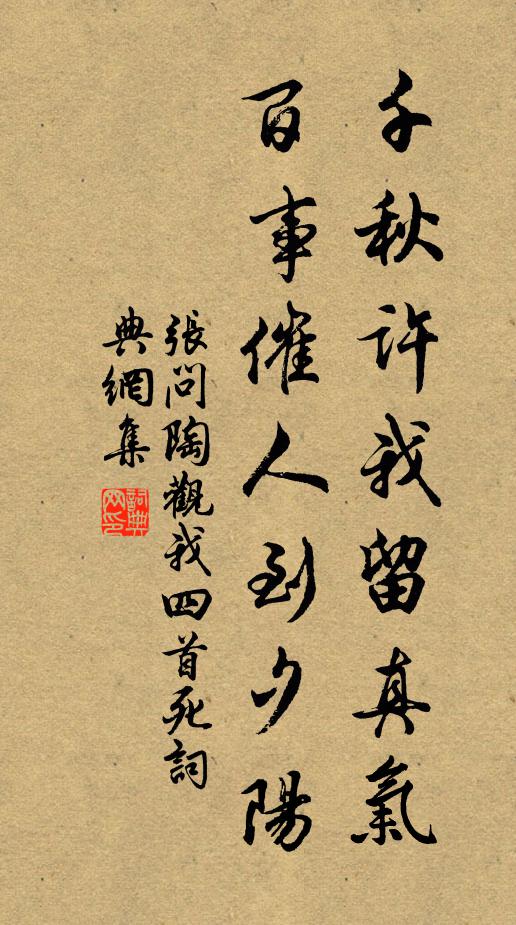 千秋許我留真氣
百事催人到夕陽
張問陶觀我四首死詞
典網集
詞典網印